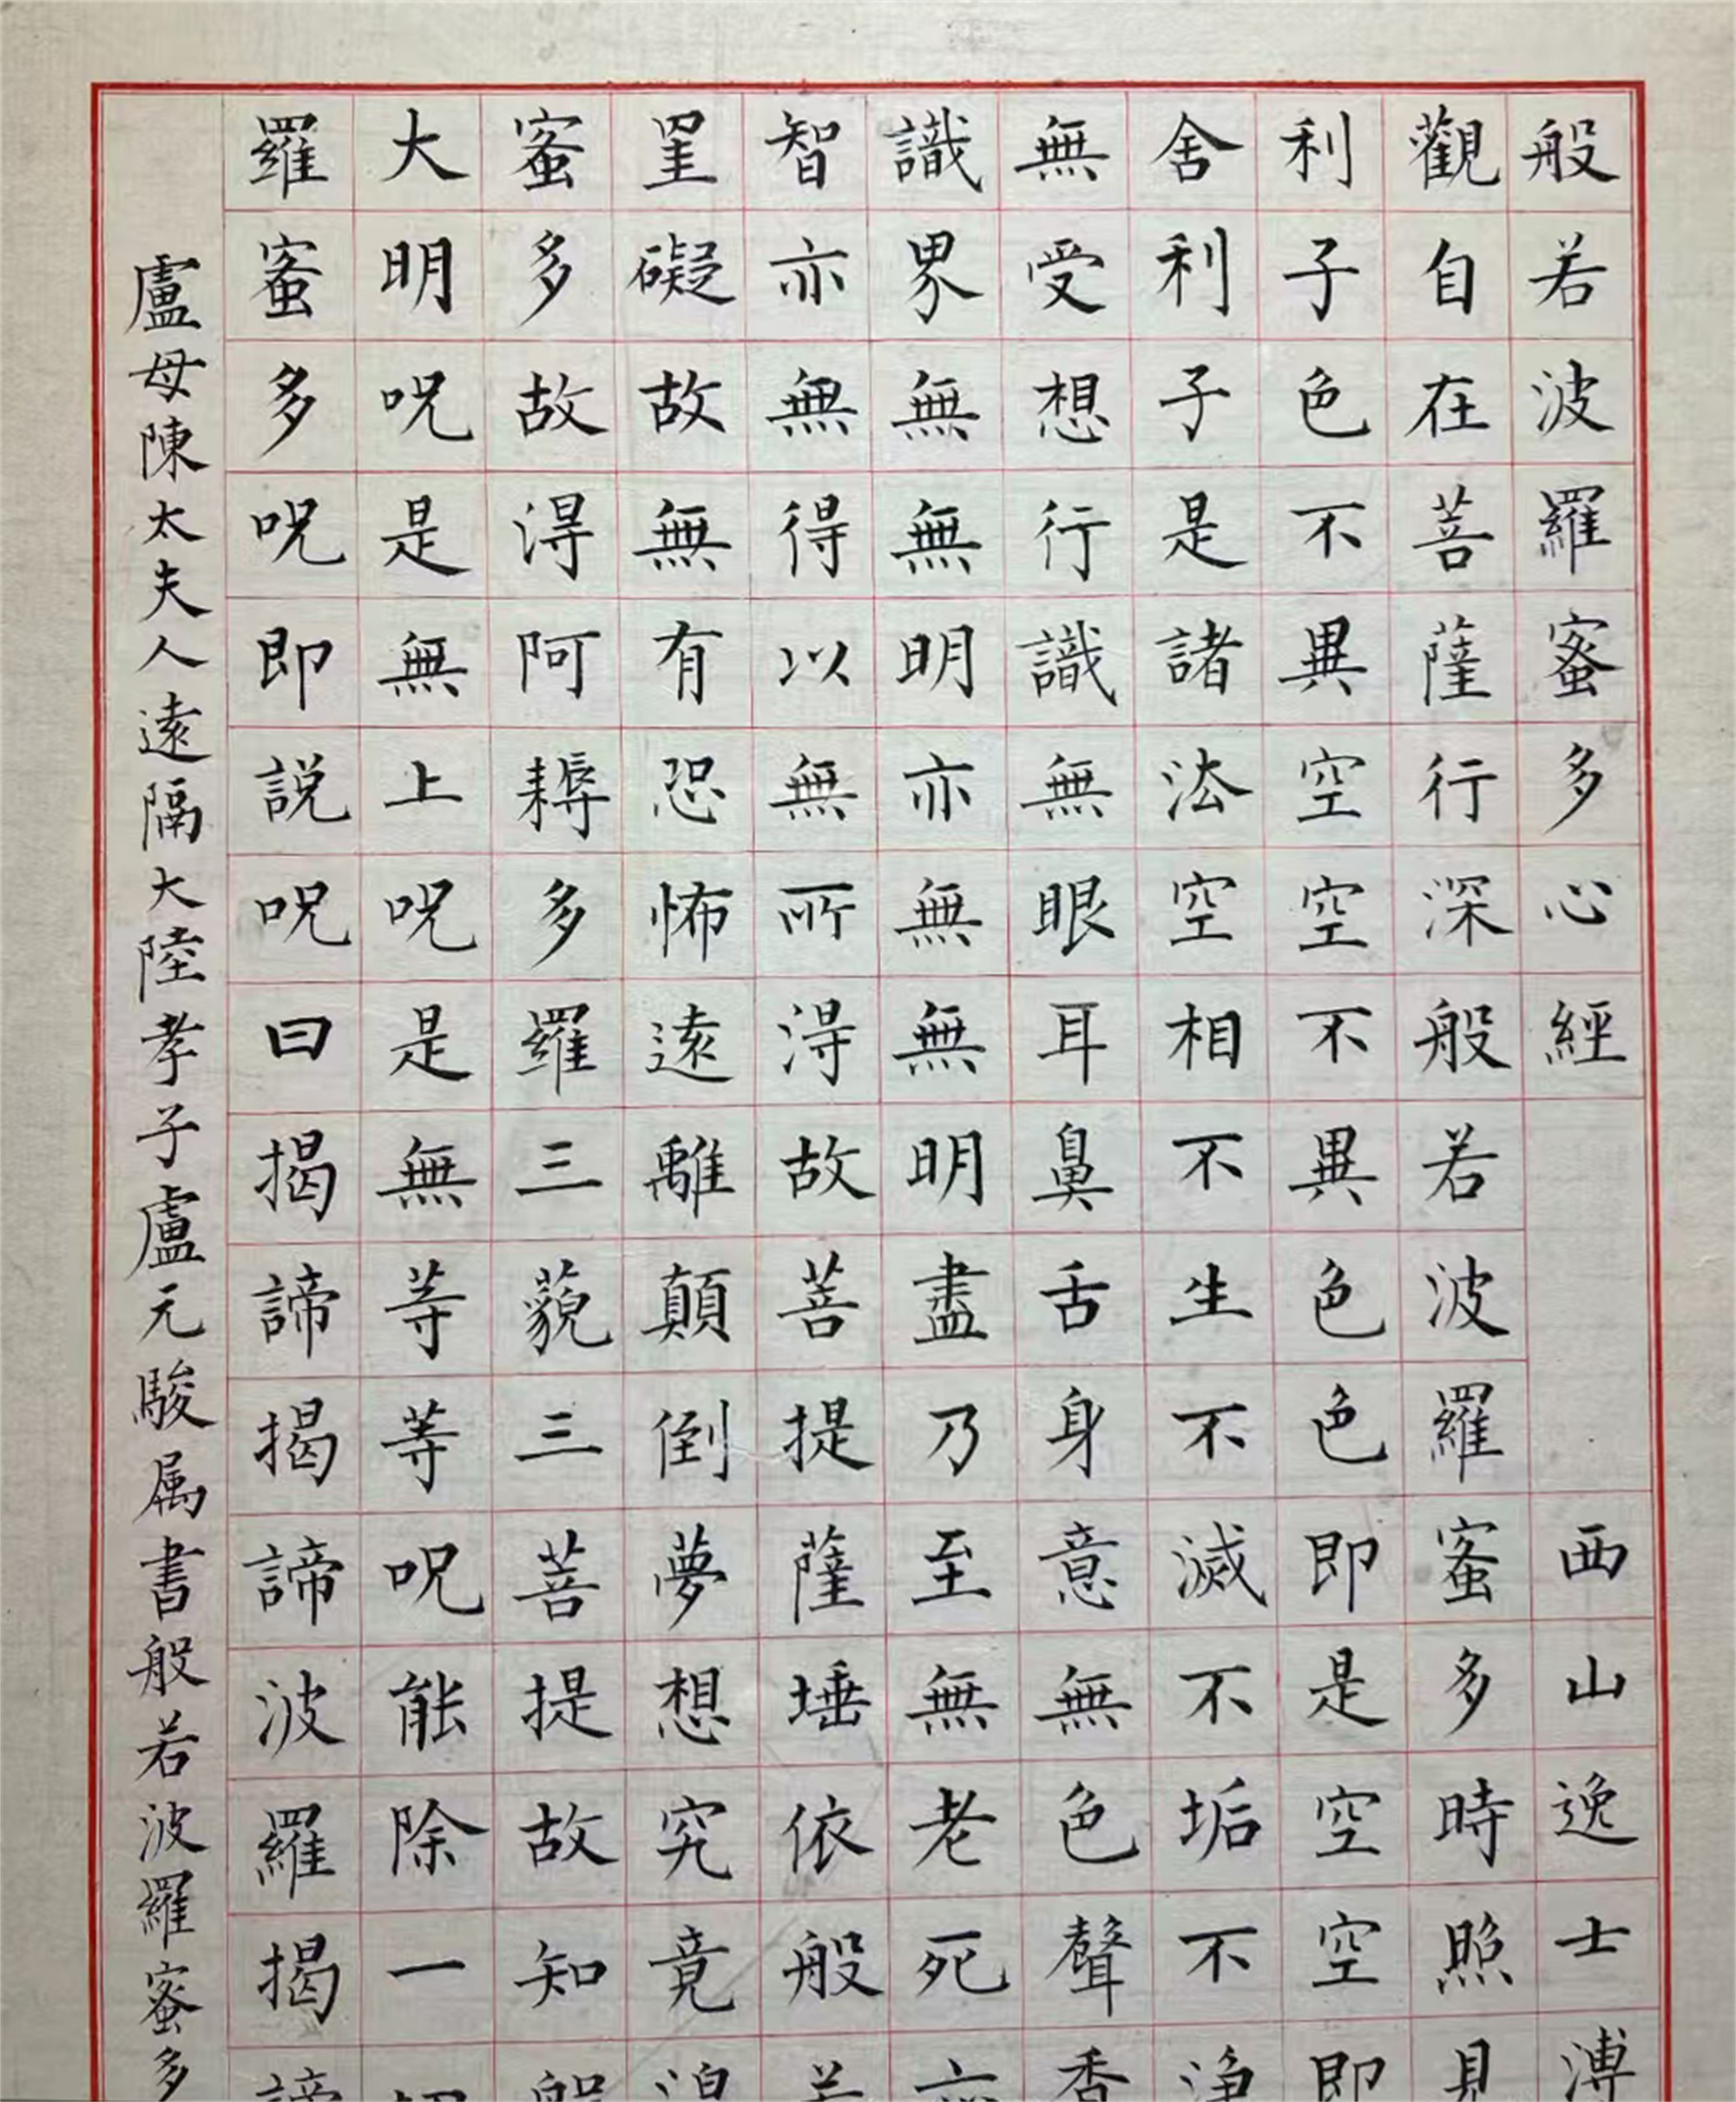 般若波羅蜜多心經　西山逸士溥
觀自在菩薩行深般若波羅蜜多時照見
利子色不異空空不異色色即是空空即
舍利子是諸法空相不生不滅不垢不淨
無受想行識無眼耳鼻舌身意無色聲香
識界無無明亦無無明盡乃至無老死亦
智亦無得以無所得故菩提薩埵依般若
罣礙故無有恐怖遠離顛倒夢想究竟涅
蜜多故得阿耨多羅三藐三菩提故知般
大明呪是無上呪是無等等呪能除一切
羅蜜多呪即説呪曰揭諦揭諦波羅揭諦
盧母陳太夫人遠隔大陸孝子盧元駿属書般若波羅蜜多